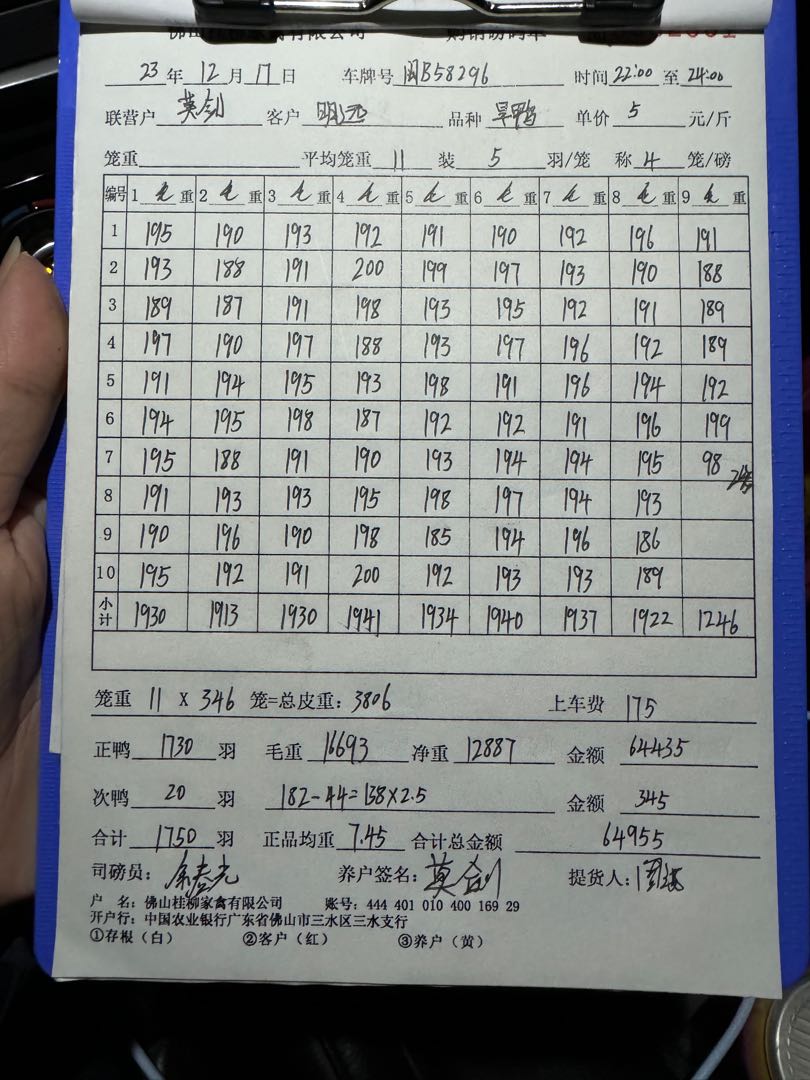 23年12月17日 车牌号 闽B58296 时间 22:00 至 24:00
联营户 莫剑 客户 明远 品种 旱鸭 单价 5 元/斤
笼重 平均笼重 11 装 5 羽/笼 称 4 笼/磅
编号 1 毛 重 2 毛 重 3 毛 重 4 毛 重 5 毛 重 6 毛 重 7 毛 重 8 毛 重 9 毛 重
1 195 190 193 192 191 190 192 196 191
2 193 188 191 200 199 197 193 190 188
3 189 187 191 198 193 195 192 191 189
4 197 190 197 188 193 197 196 192 189
5 191 194 195 193 198 191 196 194 192
6 194 195 198 187 192 192 191 196 199
7 195 188 191 190 193 194 194 195 98
8 191 193 193 195 198 197 194 193
9 190 196 190 198 185 194 196 186
10 195 192 191 200 192 193 193 189
小计 1930 1913 1930 1941 1934 1940 1937 1922 1246
笼重 11 X 346 笼=总皮重: 3806 上车费 175
正鸭 1730 羽 毛重 16693 净重 12887 金额 64435
次鸭 20 羽 182-44=138×2.5 金额 345
合计 1750 羽 正品均重 7.45 合计总金额 64955
司磅员: 养户签名: 莫剑 提货人:
户 名: 佛山桂柳家禽有限公司 账号: 444 401 010 400 169 29
开户行: 中国农业银行广东省佛山市三水区三水支行
①存根(白) ②客户(红) ③养户(黄)